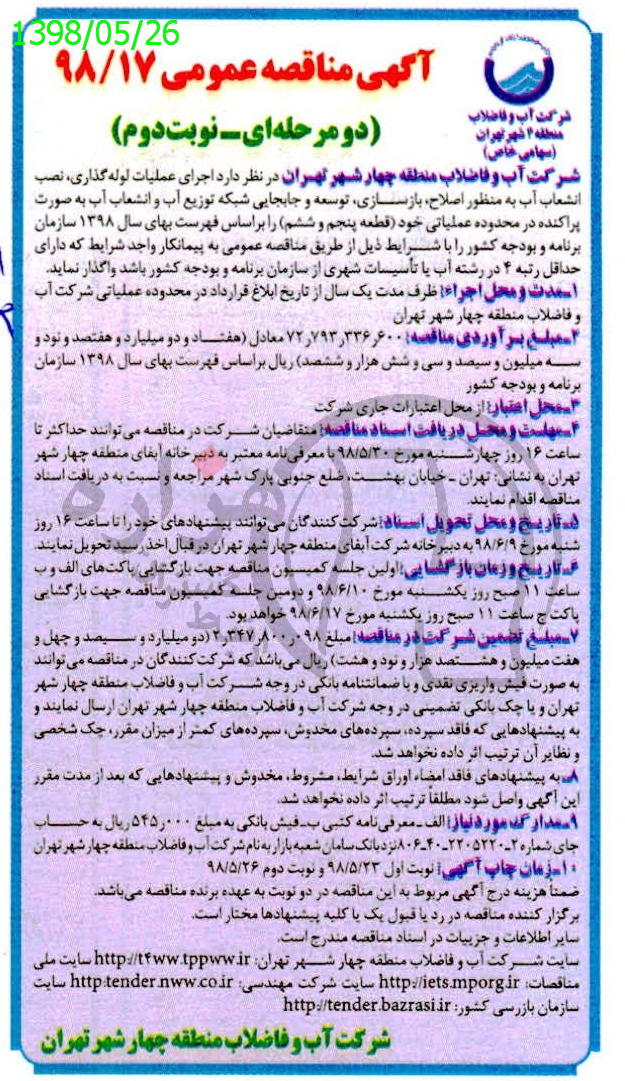 1398/05/26
آگهی مناقصه عمومی ۹۸/۱۷
(دو مرحله‌ای ـ نوبت دوم)
شرکت آب و فاضلاب
منطقه ۴ شهر تهران
(سهامی خاص)
شرکت آب و فاضلاب منطقه چهار شهر تهران در نظر دارد اجرای عملیات لوله گذاری، نصب
انشعاب آب به منظور اصلاح، بازسازی، توسعه و جابجایی شبکه توزیع آب و انشعاب آب به صورت
پراکنده در محدوده عملیاتی خود (قطعه پنجم و ششم) را براساس فهرست بهای سال ۱۳۹۸ سازمان
برنامه و بودجه کشور را با شرایط ذیل از طریق مناقصه عمومی به پیمانکار واجد شرایط که دارای
حداقل رتبه ۴ در رشته آب یا تأسیسات شهری از سازمان برنامه و بودجه کشور باشد واگذار نماید.
۱ـ مدت و محل اجراء: ظرف مدت یک سال از تاریخ ابلاغ قرارداد در محدوده عملیاتی شرکت آب
و فاضلاب منطقه چهار شهر تهران
۲ـ مبلغ برآوردی مناقصه: ۷۲٫۷۹۳٫۳۳۶٫۶۰۰ معادل (هفتاد و دو میلیارد و هفتصد و نود و
سه میلیون و سیصد و سی و شش هزار و ششصد) ریال براساس فهرست بهای سال ۱۳۹۸ سازمان
برنامه و بودجه کشور
۳ـ محل اعتبار: از محل اعتبارات جاری شرکت
۴ـ مهلت و محل دریافت اسناد مناقصه: متقاضیان شرکت در مناقصه می توانند حداکثر تا
ساعت ۱۶ روز چهارشنبه مورخ ۹۸/۵/۳۰ با معرفی نامه معتبر به دبیرخانه آبفای منطقه چهار شهر
تهران به نشانی: تهران ـ خیابان بهشت، ضلع جنوبی پارک شهر مراجعه و نسبت به دریافت اسناد
مناقصه اقدام نمایند.
۵ـ تاریخ و محل تحویل اسناد: شرکت کنندگان می توانند پیشنهادهای خود را تا ساعت ۱۶ روز
شنبه مورخ ۹۸/۶/۹ به دبیرخانه شرکت آبفای منطقه چهار شهر تهران در قبال اخذ رسید تحویل نمایند.
۶ـ تاریخ و زمان بازگشایی: اولین جلسه کمیسیون مناقصه جهت بازگشایی پاکت های الف و ب
ساعت ۱۱ صبح روز یکشنبه مورخ ۹۸/۶/۱۰ و دومین جلسه کمیسیون مناقصه جهت بازگشایی
پاکت ج ساعت ۱۱ صبح روز یکشنبه مورخ ۹۸/۶/۱۷ خواهد بود.
۷ـ مبلغ تضمین شرکت در مناقصه: مبلغ ۲٫۳۴۷٫۸۰۰٫۰۹۸ (دو میلیارد و سیصد و چهل و
هفت میلیون و هشتصد هزار و نود و هشت) ریال می باشد که شرکت کنندگان در مناقصه می توانند
به صورت فیش واریزی نقدی و یا ضمانتنامه بانکی در وجه شرکت آب و فاضلاب منطقه چهار شهر
تهران و یا چک بانکی تضمینی در وجه شرکت آب و فاضلاب منطقه چهار شهر تهران ارسال نمایند و
به پیشنهادهایی که فاقد سپرده، سپرده‌های مخدوش، سپرده‌های کمتر از میزان مقرر، چک شخصی
و نظایر آن ترتیب اثر داده نخواهد شد.
۸ـ به پیشنهادهای فاقد امضاء اوراق شرایط، مشروط، مخدوش و پیشنهادهایی که بعد از مدت مقرر
این آگهی واصل شود مطلقاً ترتیب اثر داده نخواهد شد.
۹ـ مدارک مورد نیاز: الف ـ معرفی نامه کتبی ب ـ فیش بانکی به مبلغ ۵۴۵٫۰۰۰ ریال به حساب
جای شماره ۲ـ۲۲۰۵۲۲۰ـ۴۰ـ۸۰۶ نزد بانک سامان شعبه بازار به نام شرکت آب و فاضلاب منطقه چهار شهر تهران
۱۰ـ زمان چاپ آگهی: نوبت اول ۹۸/۵/۲۳ و نوبت دوم ۹۸/۵/۲۶
ضمناً هزینه درج آگهی مربوط به این مناقصه در دو نوبت به عهده برنده مناقصه می‌باشد.
برگزار کننده مناقصه در رد یا قبول یک یا کلیه پیشنهادها مختار است.
سایر اطلاعات و جزییات در اسناد مناقصه مندرج است.
سایت شرکت آب و فاضلاب منطقه چهار شهر تهران: http://t4ww.tppww.ir سایت ملی
مناقصات: http://iets.mporg.ir سایت شرکت مهندسی: http:tender.nww.co.ir سایت
سازمان بازرسی کشور: http://tender.bazrasi.ir
شرکت آب و فاضلاب منطقه چهار شهر تهران
هزاره